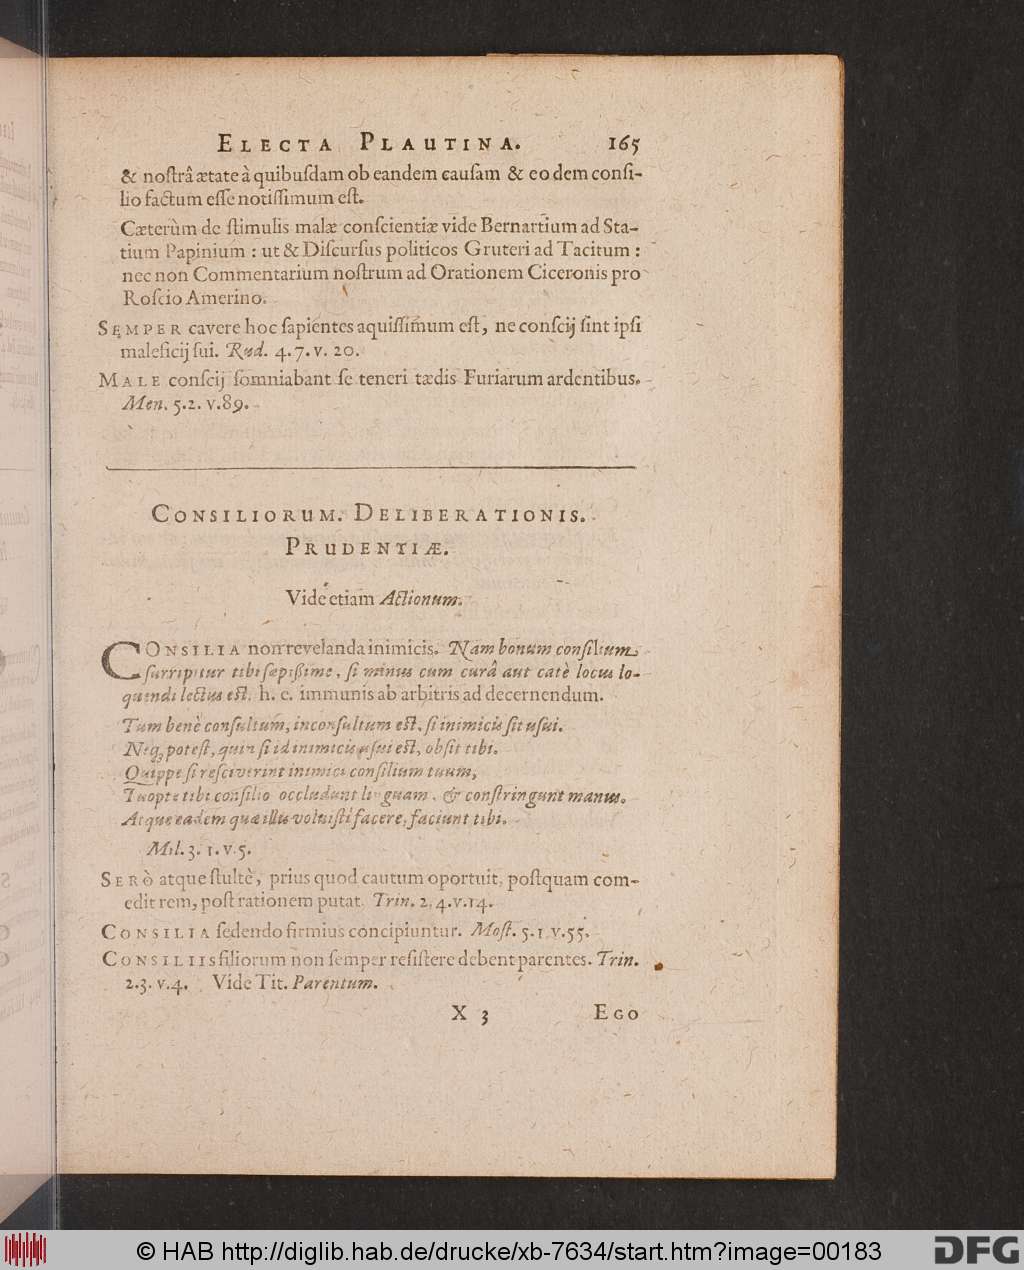 ELECTA PLAUTINA. 165
& noſtrâ ætate à quibuſdam ob eandem cauſam & eodem conſi-
lio factum eſſe notiſſimum eſt.
Cæterùm de ſtimulis malæ conſcientiæ vide Bernartium ad Sta-
tium Papinium : ut & Diſcurſus politicos Gruteri ad Tacitum :
nec non Commentarium noſtrum ad Orationem Ciceronis pro
Roſcio Amerino.
SEMPER cavere hoc ſapientes aquiſſimum eſt, ne conſcij ſint ipſi
maleficij ſui. Rud. 4.7. v. 20.
MALE conſcij ſomniabant ſe teneri tædis Furiarum ardentibus.
Men. 5.2. v.89.
CONSILIORUM. DELIBERATIONIS.
PRUDENTIÆ.
Vide etiam Actionum.
CONSILIA non revelanda inimicis. Nam bonum conſilium
ſurripitur tibi ſæpiſſime, ſi minus cum curâ aut catè locus lo-
quendi lectus eſt. h. e. immunis ab arbitris ad decernendum.
Tum benè conſultum, inconſultum eſt, ſi inimicis ſit uſui.
Neq; poteſt, quin ſi id inimicis uſui eſt, obſit tibi.
Quippe ſi reſciverint inimici conſilium tuum,
Tuopte tibi conſilio occludunt linguam, & conſtringunt manus.
Atque eadem quæ illis voluiſti facere, faciunt tibi.
Mil. 3. 1. v.5.
SERÒ atque ſtultè, prius quod cautum oportuit, poſtquam com-
edit rem, poſt rationem putat. Trin. 2.4.v.14.
CONSILIA ſedendo firmius concipiuntur. Moſt. 5.1.v.55.
CONSILIIS filiorum non ſemper reſiſtere debent parentes. Trin.
2.3. v.4. Vide Tit. Parentum.
X 3 EGO
© HAB http://diglib.hab.de/drucke/xb-7634/start.htm?image=00183 DFG